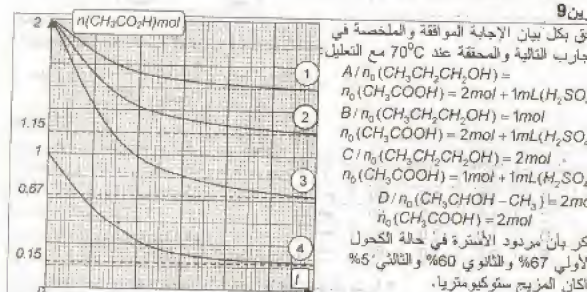 رين9
n(CH₃CO₂H)mol
2
1.15
1
0.67
0.15
0
t
1
2
3
4
فق بكل بيان الإجابة الموافقة والملخصة في
جارب التالية والمحققة عند 70⁰C مع التعليل:
A/n₀(CH₃CH₂CH₂OH) =
n₀(CH₃COOH) = 2mol + 1mL(H₂SO
B/n₀(CH₃CH₂CH₂OH) = 1mol
n₀(CH₃COOH) = 2mol + 1mL(H₂SO
C/n₀(CH₃CH₂CH₂OH) = 2mol
n₀(CH₃COOH) = 1mol + 1mL(H₂SO
D/n₀(CH₃CHOH – CH₃) = 2mo
n₀(CH₃COOH) = 2mol
كر بأن مردود الأسترة في حالة الكحول
لأولي 67% والثانوي 60% والثالثي 5%
اكان المزيج ستوكيومتريا.